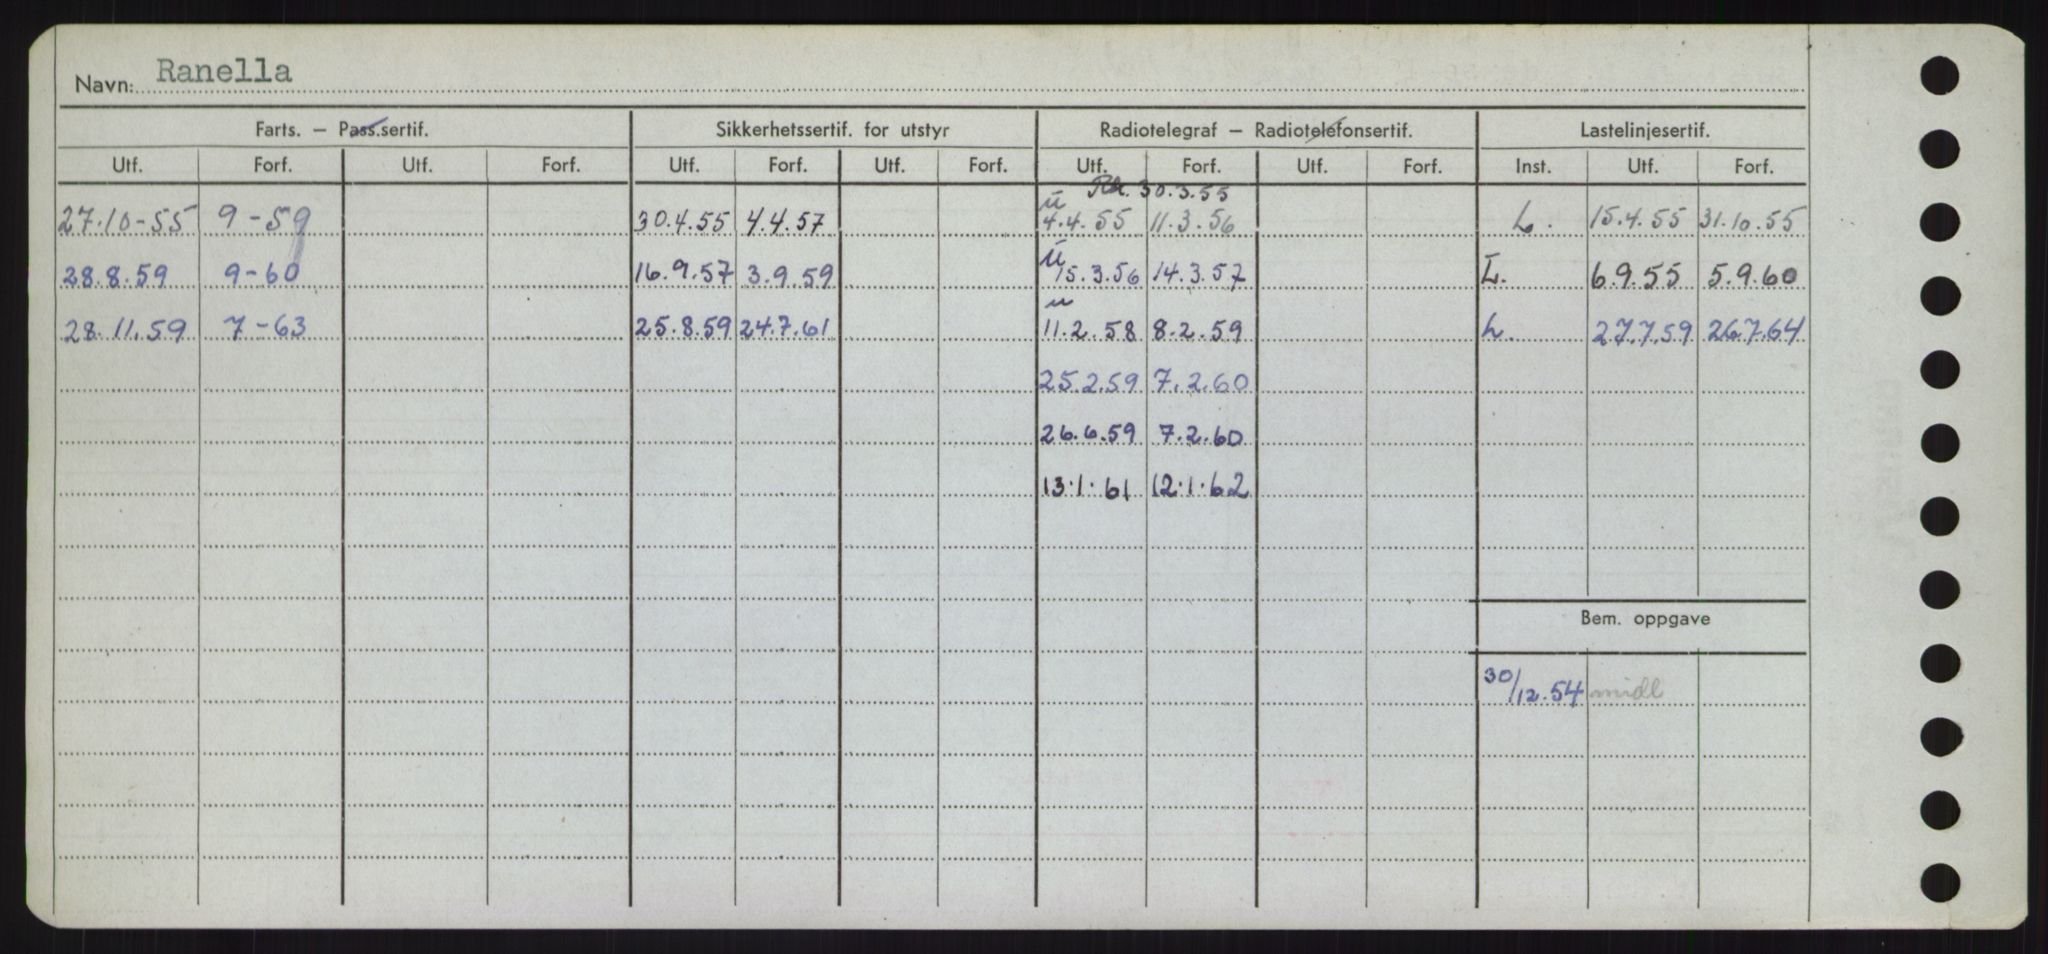 Navn: Ranella
Farts. – Pass.sertif. Sikkerhetssertif. for utstyr Radiotelegraf – Radiotelefonsertif. Lastelinjesertif.
Utf. Forf. Utf. Forf. Utf. Forf. Utf. Forf. Utf. Forf. Utf. Forf. Inst. Utf. Forf.
30.3.55
27.10-55 9-59 30.4.55 4.4.57 ü 4.4.55 11.3.56 L. 15.4.55 31.10.55
28.8.59 9-60 16.9.57 3.9.59 ü 15.3.56 14.3.57 L. 6.9.55 5.9.60
28.11.59 7-63 25.8.59 24.7.61 u 11.2.58 8.2.59 L. 27.7.59 26.7.64
25.2.59 7.2.60
26.6.59 7.2.60
13.1.61 12.1.62
Bem. oppgave
30/12.54 midl